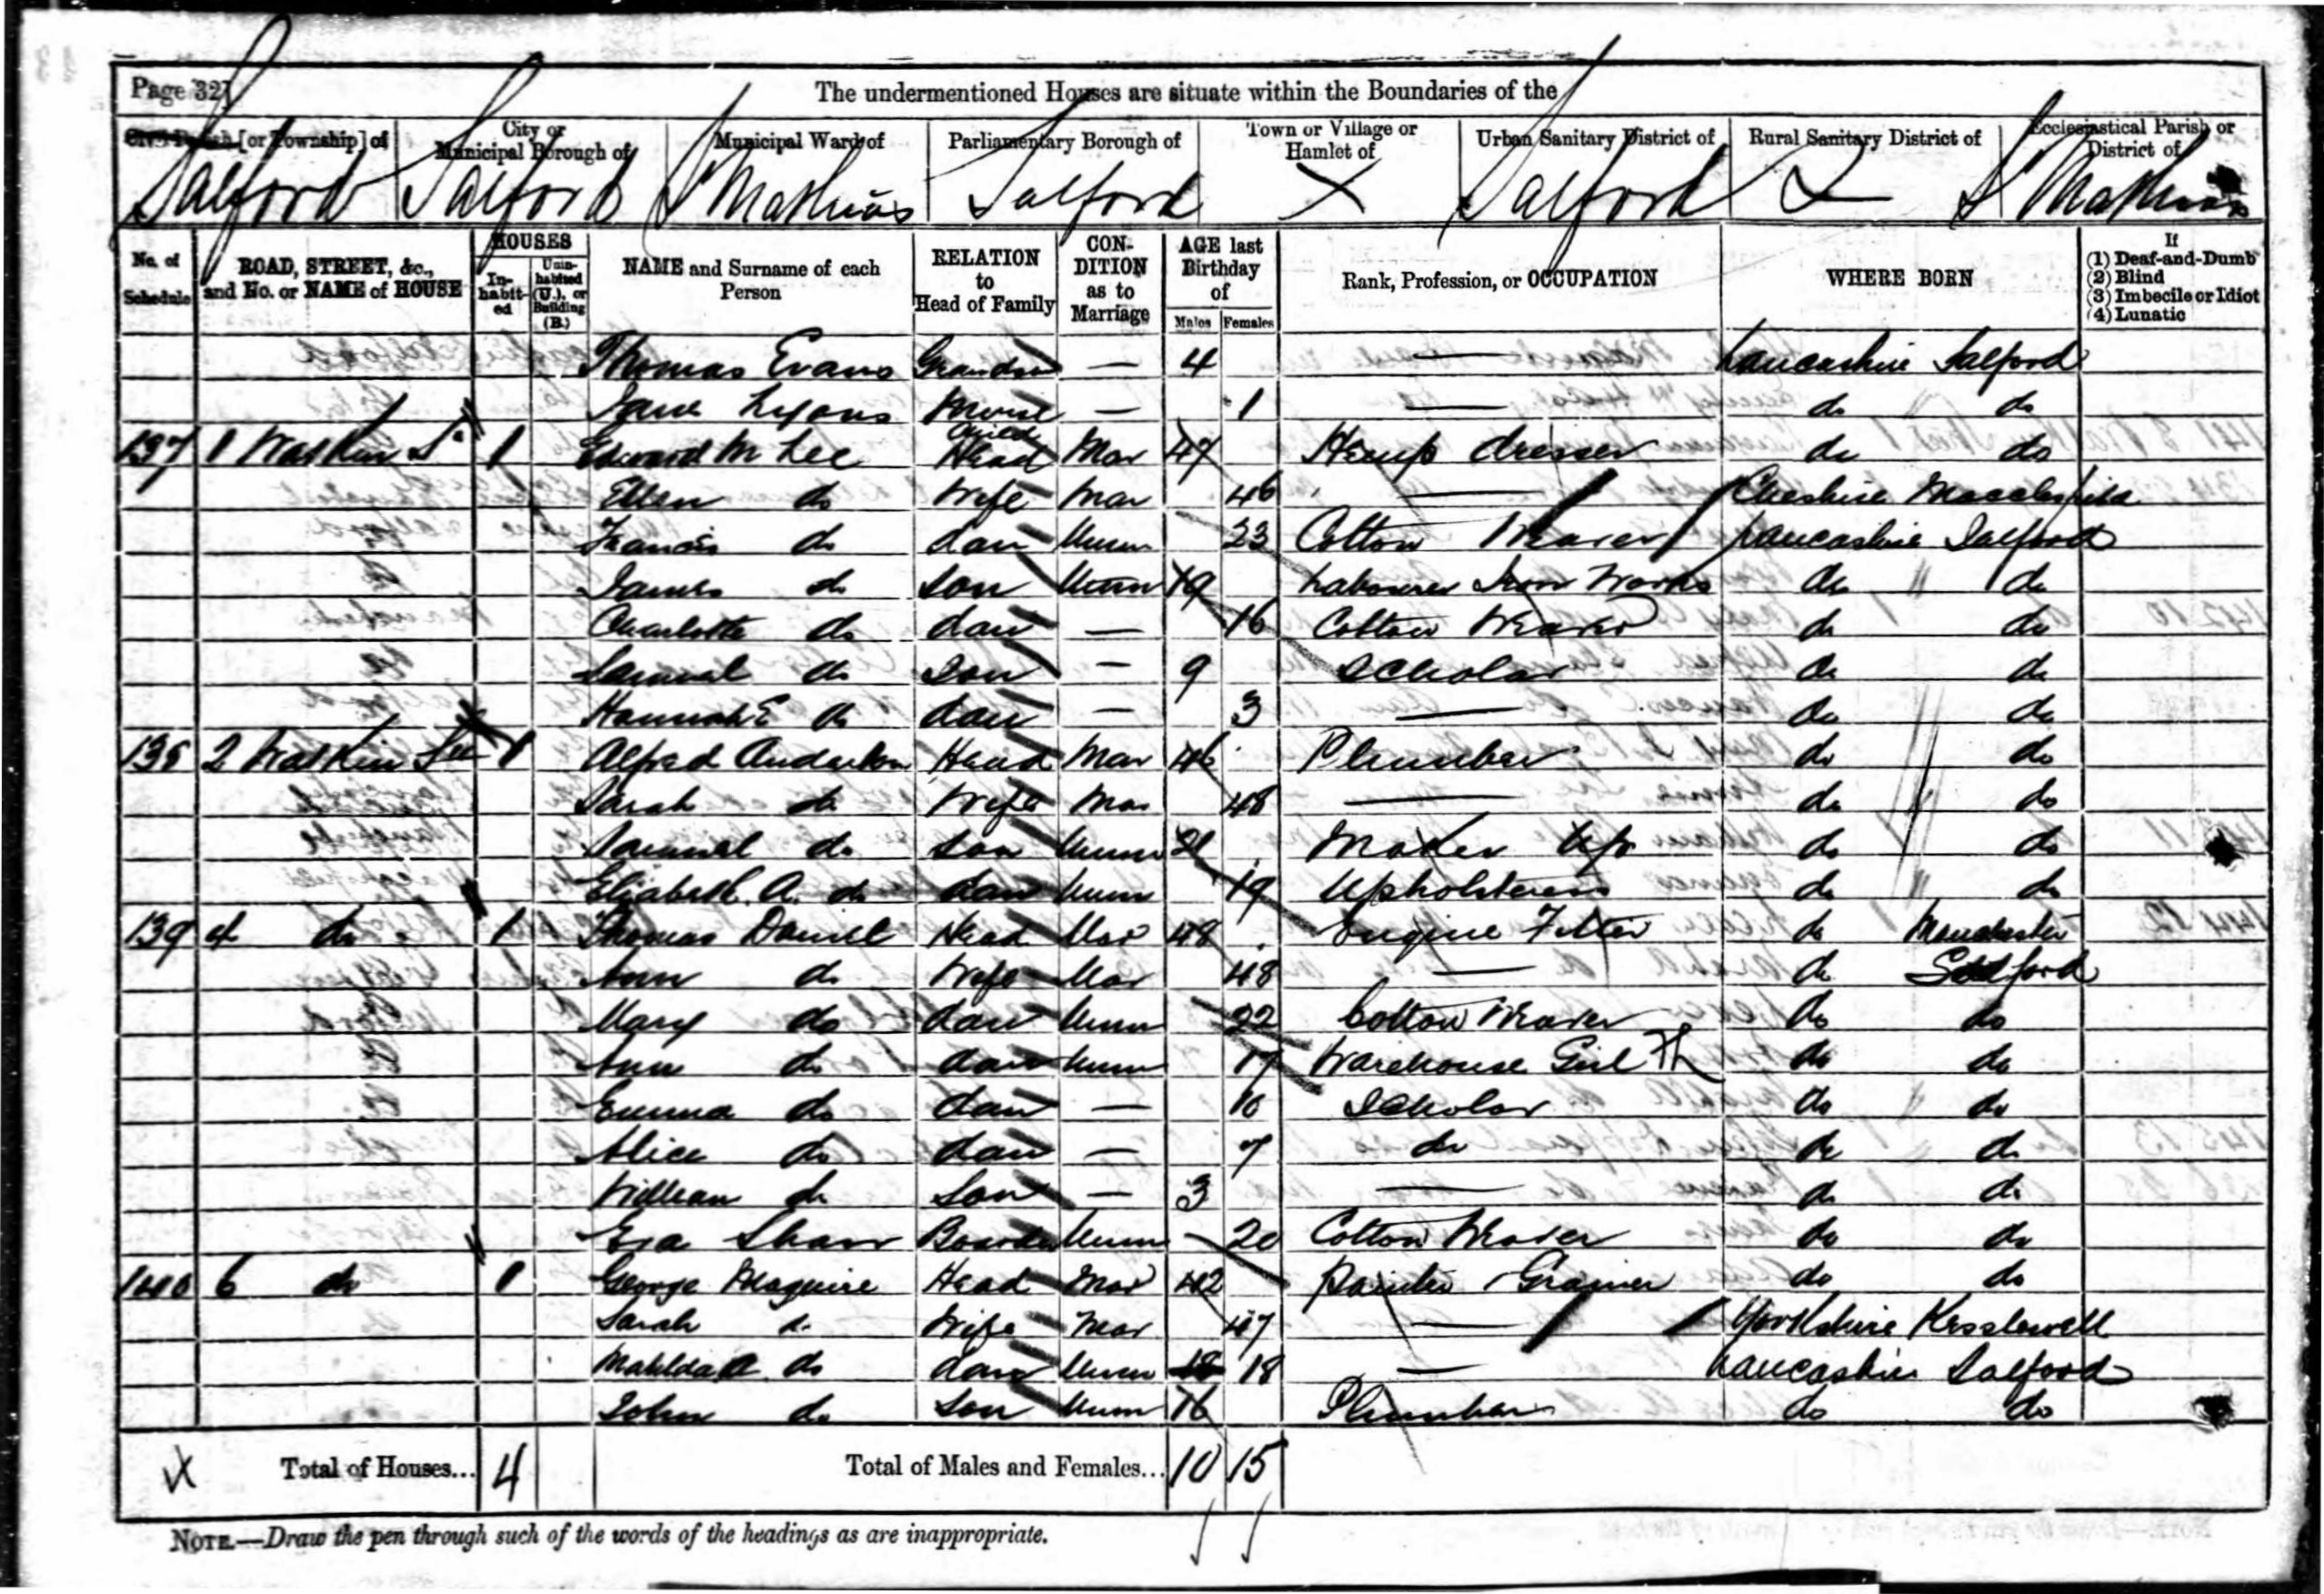 Page 32]
The undermentioned Houses are situate within the Boundaries of the
Civil Parish [or Township] of City or Municipal Borough of Municipal Ward of Parliamentary Borough of Town or Village or Hamlet of Urban Sanitary District of Rural Sanitary District of Ecclesiastical Parish or District of
Salford Salford St Mathias Salford X Salford St Mathias
No. of Schedule ROAD, STREET, &c., and No. or NAME of HOUSE HOUSES Inhabited Uninhabited (U.), or Building (B.) NAME and Surname of each Person RELATION to Head of Family CONDITION as to Marriage AGE last Birthday of Males Females Rank, Profession, or OCCUPATION WHERE BORN If (1) Deaf-and-Dumb (2) Blind (3) Imbecile or Idiot (4) Lunatic
Thomas Evans Grandson — 4 — Lancashire Salford
Jane Lyons Nurse Child — 1 — do do
137 1 Watkin St 1 Edward M Lee Head Mar 47 Hemp dresser do do
Ellen do Wife Mar 46 — Cheshire Macclesfield
Francis do dau Unm 23 Cotton Weaver Lancashire Salford
James do Son Unm 19 Labourer Iron Works do do
Charlotte do dau — 16 Cotton Weaver do do
Samuel do Son — 9 Scholar do do
Hannah E do dau — 3 — do do
138 2 Watkin St 1 Alfred Anderton Head Mar 46 Plumber do do
Sarah do Wife Mar 48 — do do
Samuel do Son Unm 21 Maker Up do do
Elizabeth A. do dau Unm 19 Upholsteress do do
139 4 do 1 Thomas Daniel Head Mar 48 Engine Fitter do Manchester
Ann do Wife Mar 48 — do Salford
Mary do dau Unm 22 Cotton Weaver do do
Ann do dau Unm 17 Warehouse Girl do do
Emma do dau — 10 Scholar do do
Alice do dau — 7 do do do
William do Son — 3 — do do
Eza Shaw Boarder Unm 20 Cotton Weaver do do
140 6 do 1 George Maguire Head Mar 42 Painter Grainer do do
Sarah do Wife Mar 47 — Yorkshire Kesslewell
Matilda A do dau Unm 18 — Lancashire Salford
John do Son Unm 16 Plumber do do
Total of Houses... 4 Total of Males and Females... 10 15
NOTE.—Draw the pen through such of the words of the headings as are inappropriate.